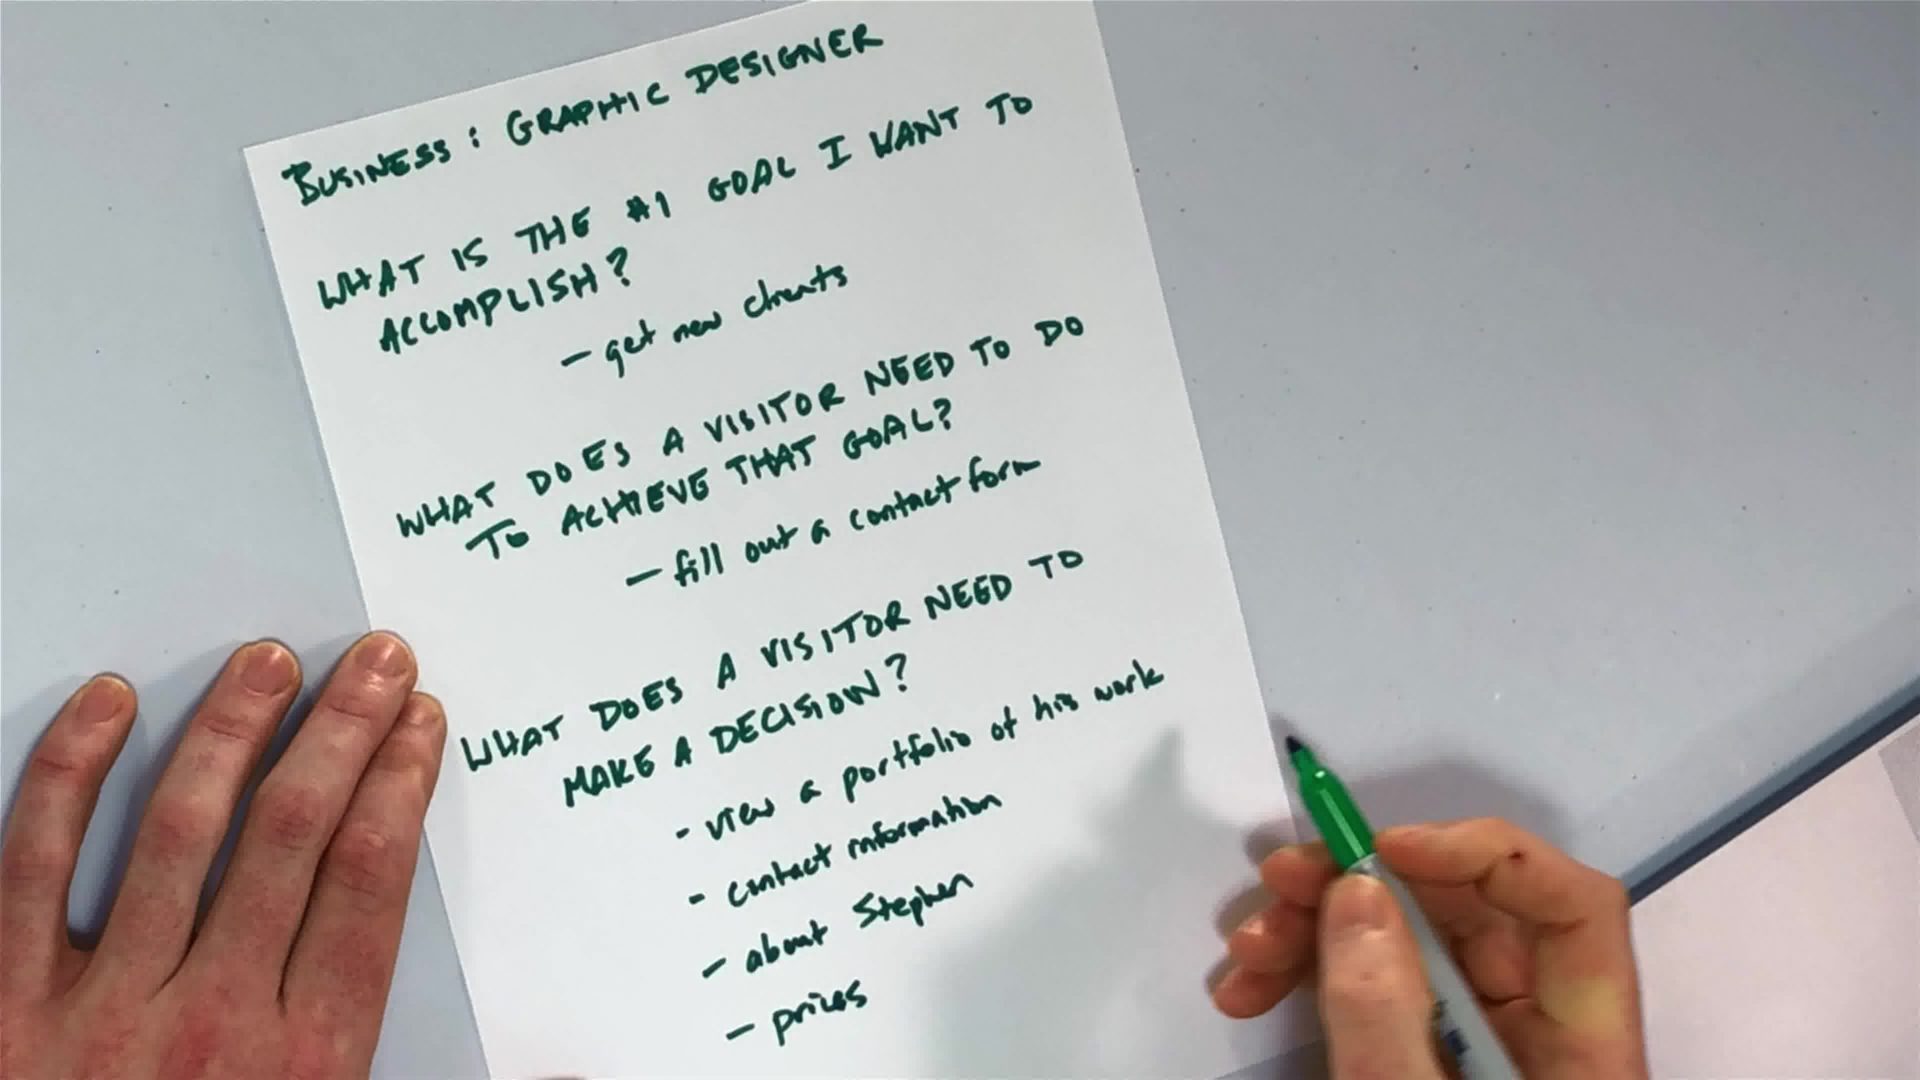 BUSINESS: GRAPHIC DESIGNER
WHAT IS THE #1 GOAL I WANT TO
ACCOMPLISH?
- get new clients
WHAT DOES A VISITOR NEED TO DO
TO ACHIEVE THAT GOAL?
- fill out a contact form
WHAT DOES A VISITOR NEED TO
MAKE A DECISION?
- view a portfolio of his work
- contact information
- about Stephen
- prices